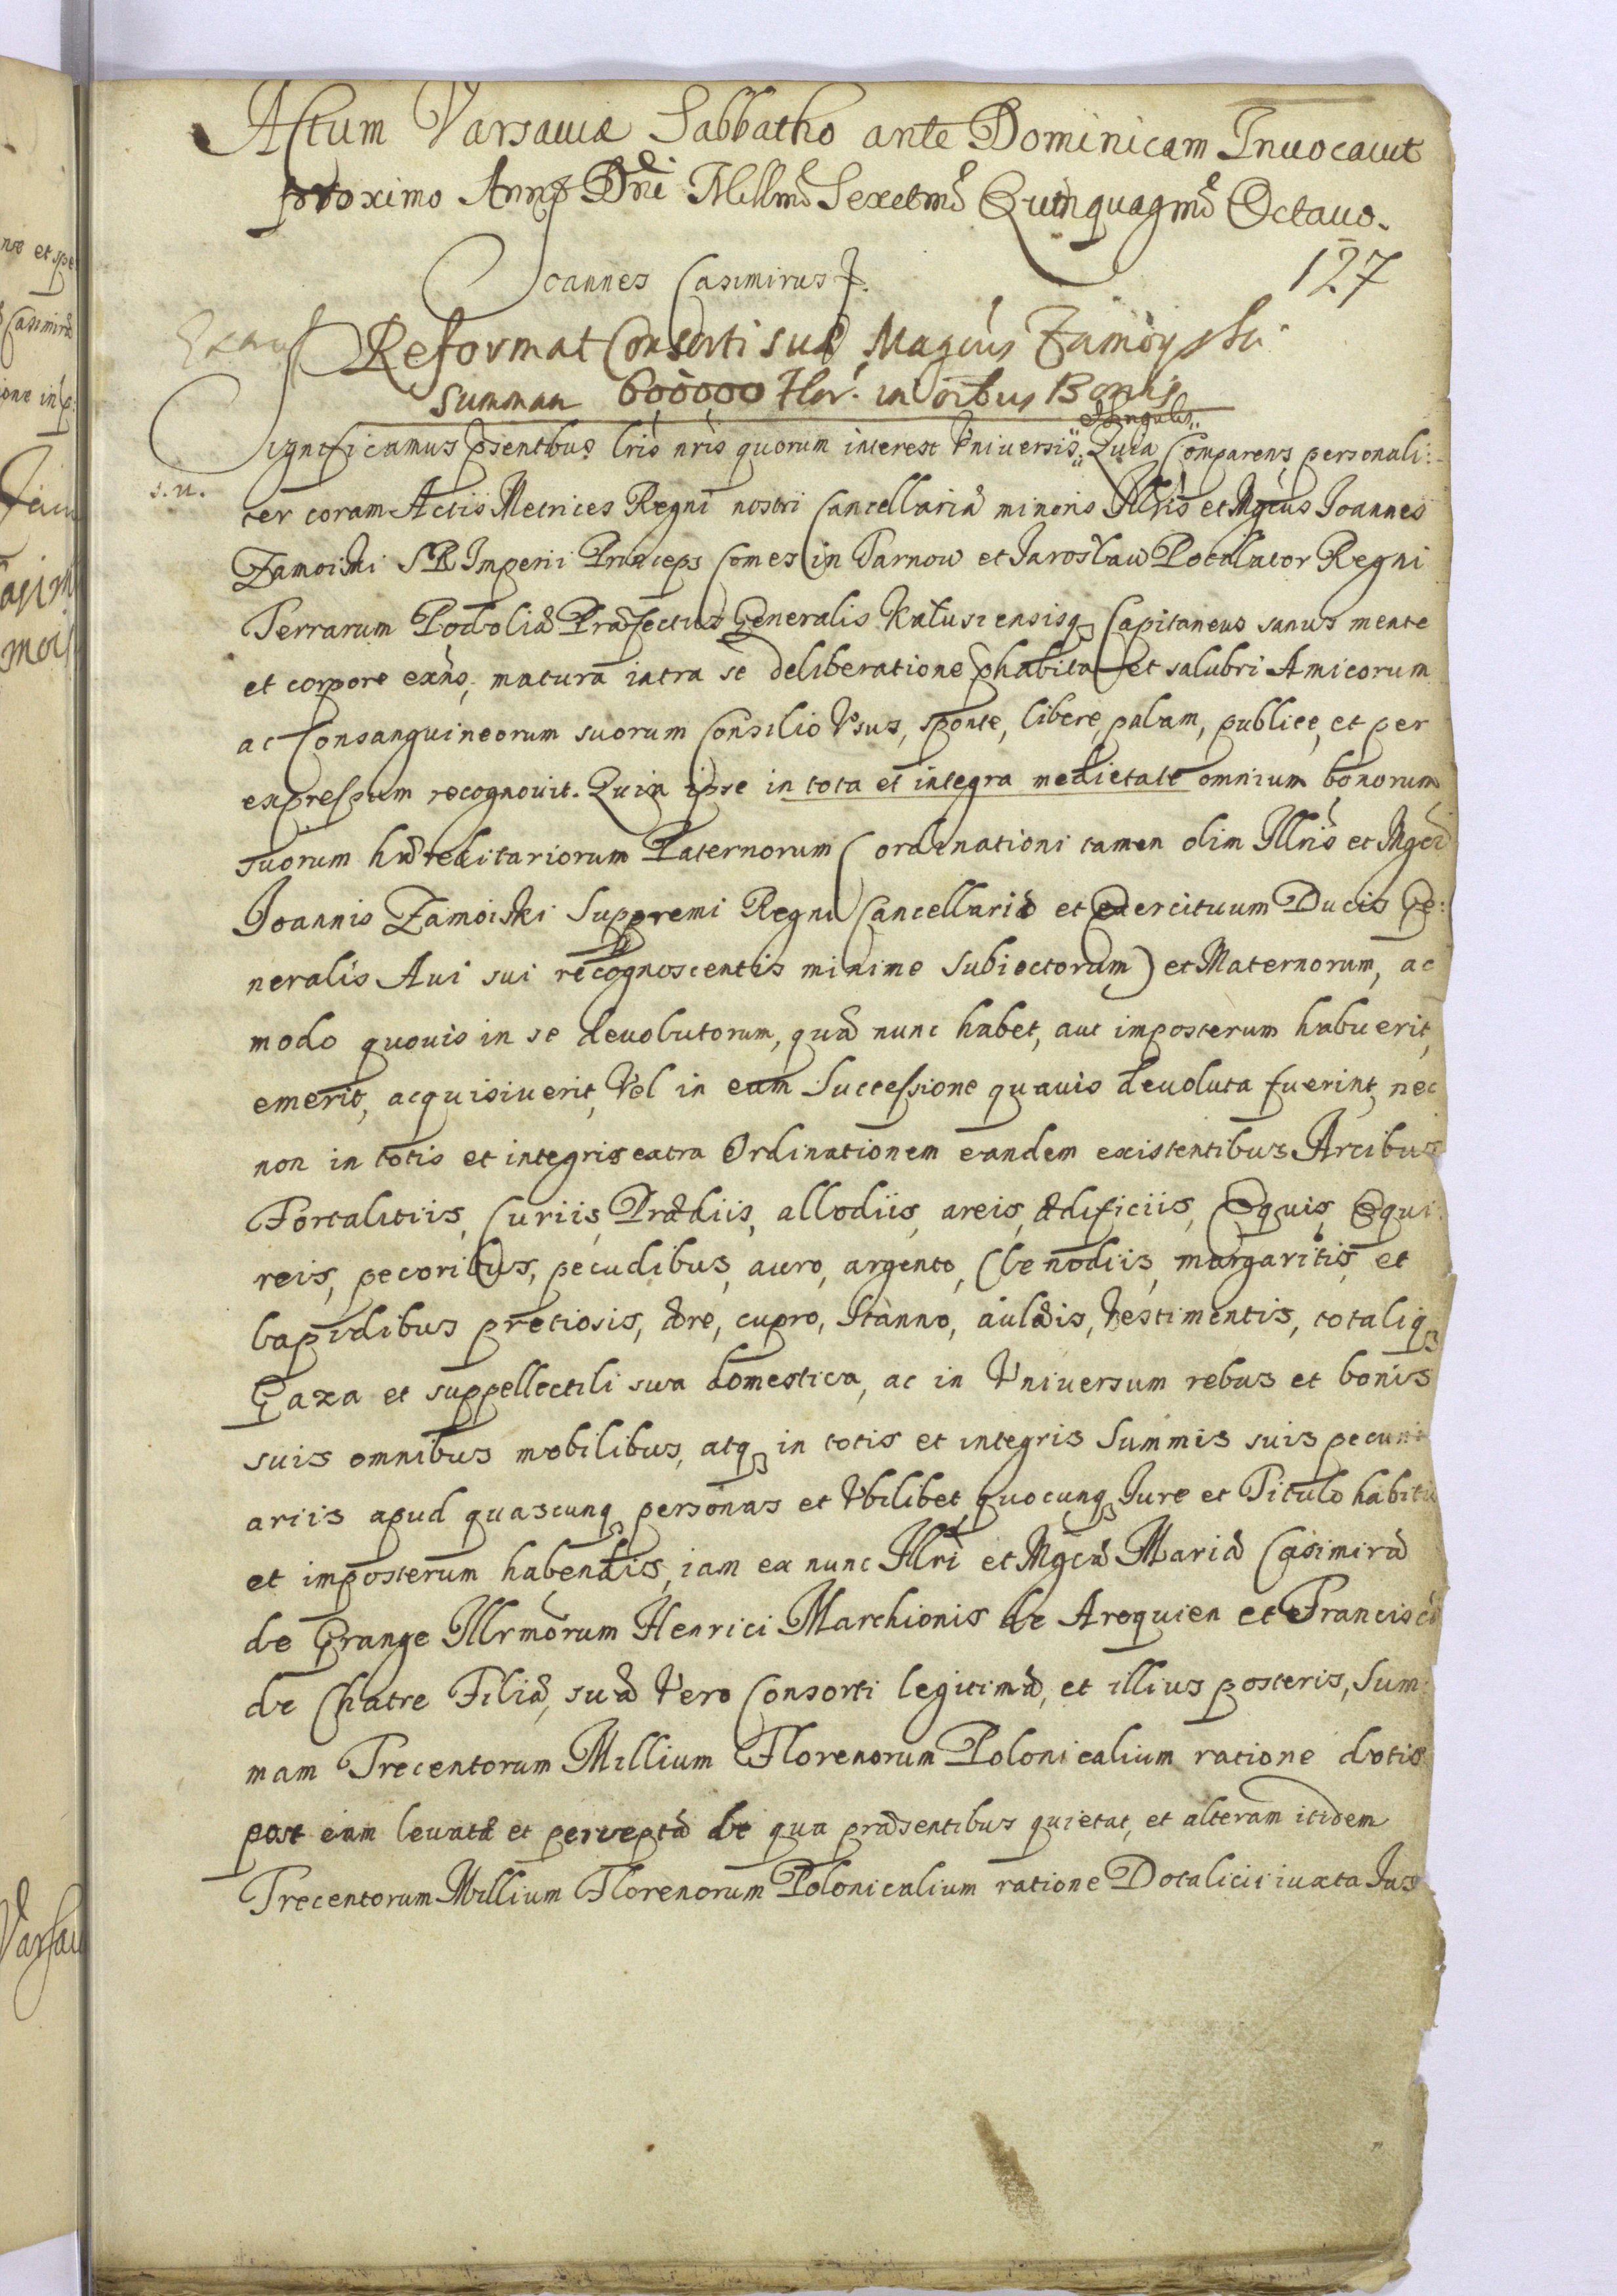 Actum Varsauiæ Sabbatho ante Dominicam Inuocauit
proximo Anno Dñi Millmo Sexctmo Quinquagmo Octauo.
127
Joannes Casimirus &.
Reformat Consorti suæ Magcus Zamoyski
summam 600000 Flor. in oibus Bonis
Significamus pńtibus lris nris quorum interest Vniuersis et singulis Quia Comparens personali:
s.n.
ter coram Actis Metrices Regni nostri Cancellariæ minoris Illris et Mgcus Joannes
Zamoiski S R Imperii Princeps Comes in Tarnow et Jarosław Pocillator Regni
Terrarum Podoliæ Præfectus Generalis Kałusiensisq Capitaneus sanus mente
et corpore exñs, matura intra se deliberatione phabita et salubri Amicorum
ac Consanguineorum suorum Consilio Vsus, sponte, libere, palam, publice, et per
expressum recognouit. Quia ipse in tota et integra medietate omnium bonorum
suorum hæreditariorum Paternorum (ordinationi tamen olim Illris et Mgci
Joannis Zamoiski Suppremi Regni Cancellarii et exercituum Ducis Ge:
neralis Aui sui recognoscentis minime subiectorum) et Maternorum, ac
modo quouis in se deuolutorum, quæ nunc habet, aut imposterum habuerit,
emerit, acquisiuerit, Vel in eum Successione quauis deuoluta fuerint, nec
non in totis et integris extra Ordinationem eandem existentibus Arcibus
Fortalitiis, Curiis, Prædiis, allodiis, areis, ædificiis, Equis, Equi:
reis, pecoribus, pecudibus, auro, argento, Clenodiis, margaritis, et
lapidibus pretiosis, ære, cupro, Stanno, aulæis, Vestimentis, totaliq
Gaza et suppellectili sua domestica, ac in Vniuersum rebus et bonis
suis omnibus mobilibus, atq in totis et integris Summis suis pecuni
ariis apud quascunq personas et Vbilibet quocunq Jure et Titulo habitis
et imposterum habendis, iam ex nunc Illri et Mgcæ Mariæ Casimiræ
de Grange Illrmorum Henrici Marchionis de Arequien et Franciscæ
de Chatre Filiæ, suæ Vero Consorti legitimæ, et illius posteris, Sum
mam Trecentorum Millium Florenorum Polonicalium ratione dotis
post eam leuatæ et perceptæ de qua præsentibus quietat, et alteram itidem
Trecentorum Millium Florenorum Polonicalium ratione Dotalicii iuxta Jus